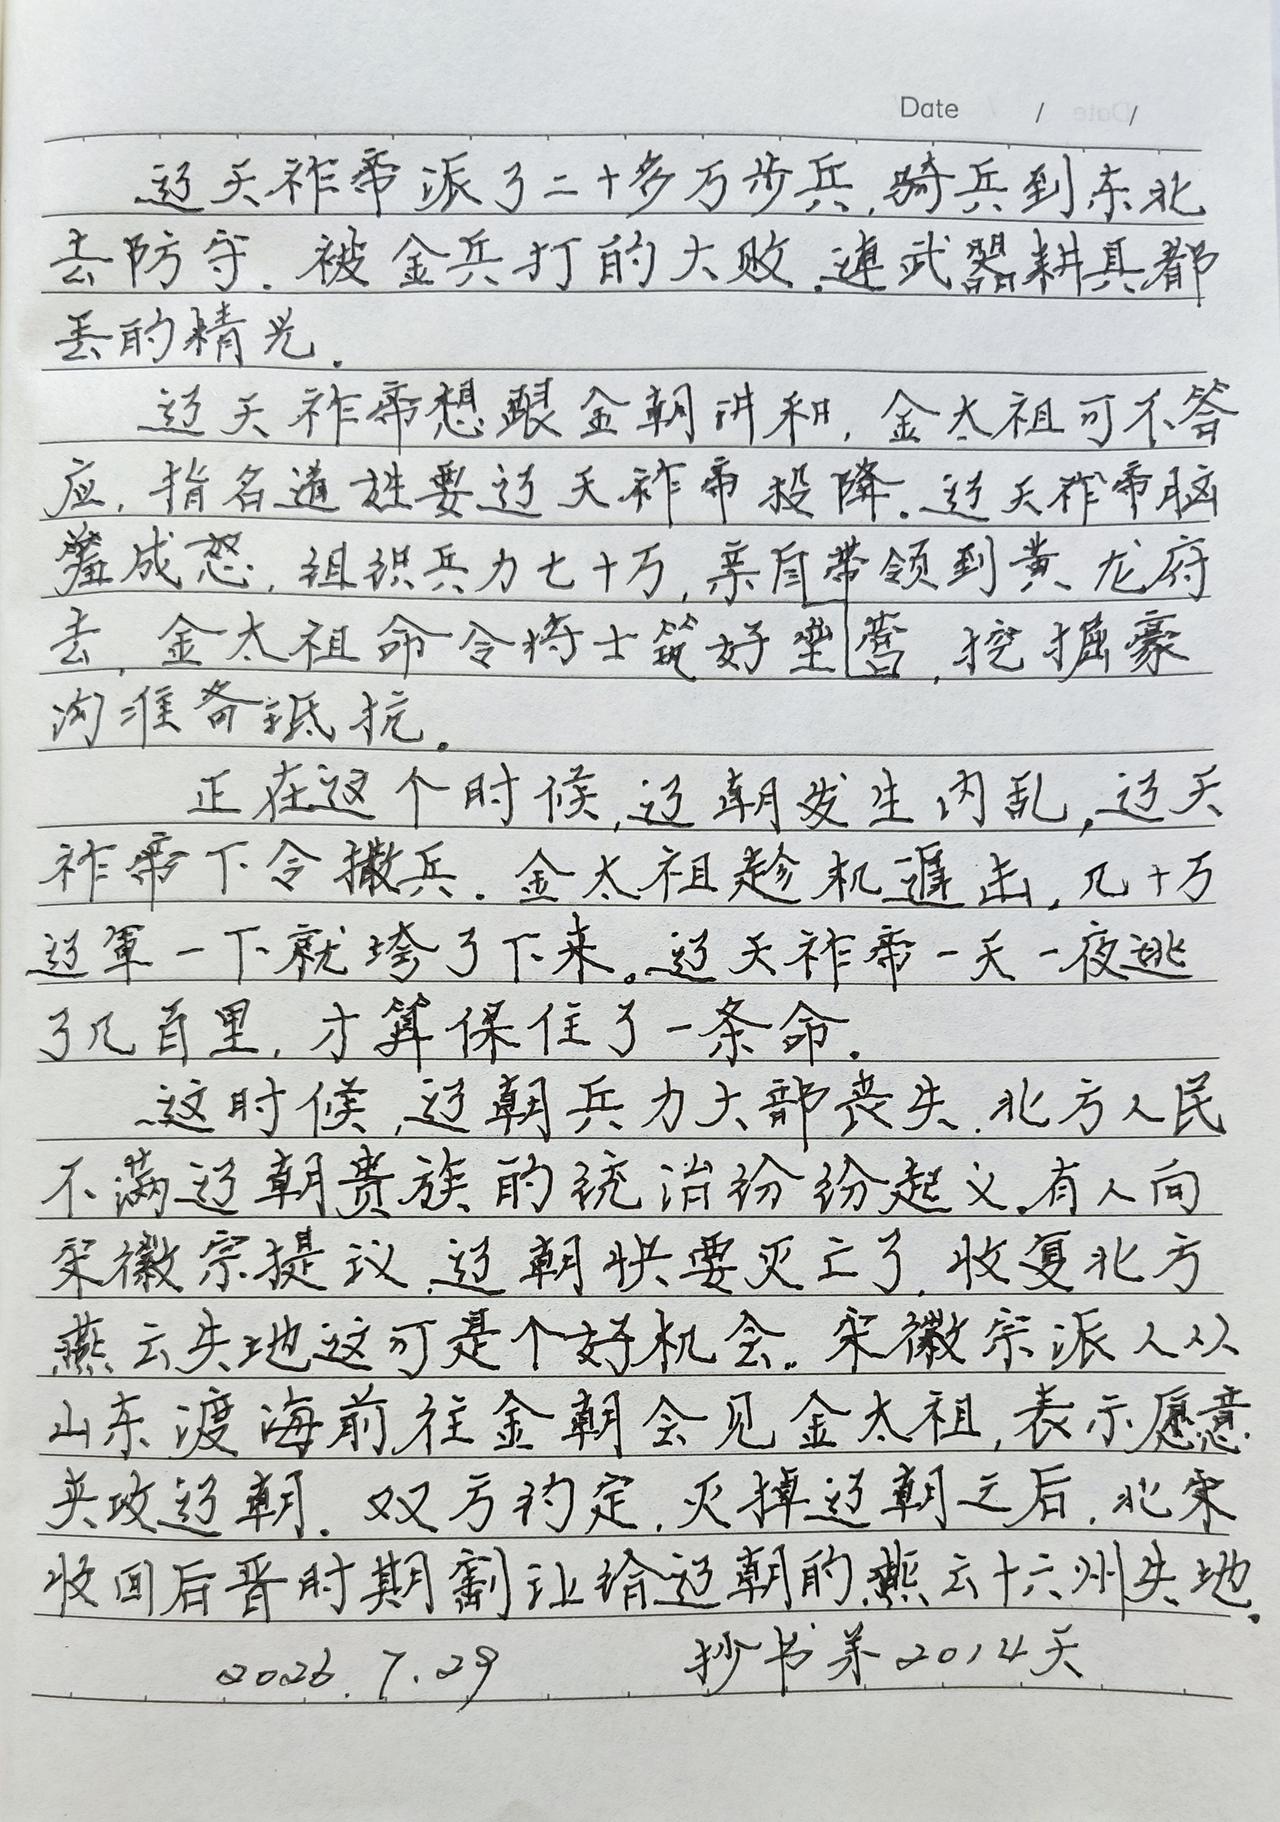 Date / /
辽天祚帝派了二十多万步兵,骑兵到东北
去防守.被金兵打的大败.連武器耕具都
丢的精光.
辽天祚帝想跟金朝讲和,金太祖可不答
应,指名道姓要辽天祚帝投降.辽天祚帝脑
羞成怒,组织兵力七十万,亲自带领到黄龙府
去,金太祖命令将士筑好垒营,挖掘豪
沟准备抵抗.
正在这个时候,辽朝发生内乱,辽天
祚帝下令撤兵.金太祖趁机追击,几十万
辽軍一下就垮了下来。辽天祚帝一天一夜逃
了几百里,才算保住了一条命.
这时候,辽朝兵力大部丧失.北方人民
不满辽朝贵族的统治纷纷起义.有人向
宋徽宗提议,辽朝快要灭亡了,收复北方
燕云失地这可是个好机会。宋徽宗派人从
山东渡海前往金朝会见金太祖,表示愿意
夹攻辽朝.双方约定,灭掉辽朝之后,北宋
收回后晋时期割让给辽朝的燕云十六州失地.
2026.7.29 抄书第2014天